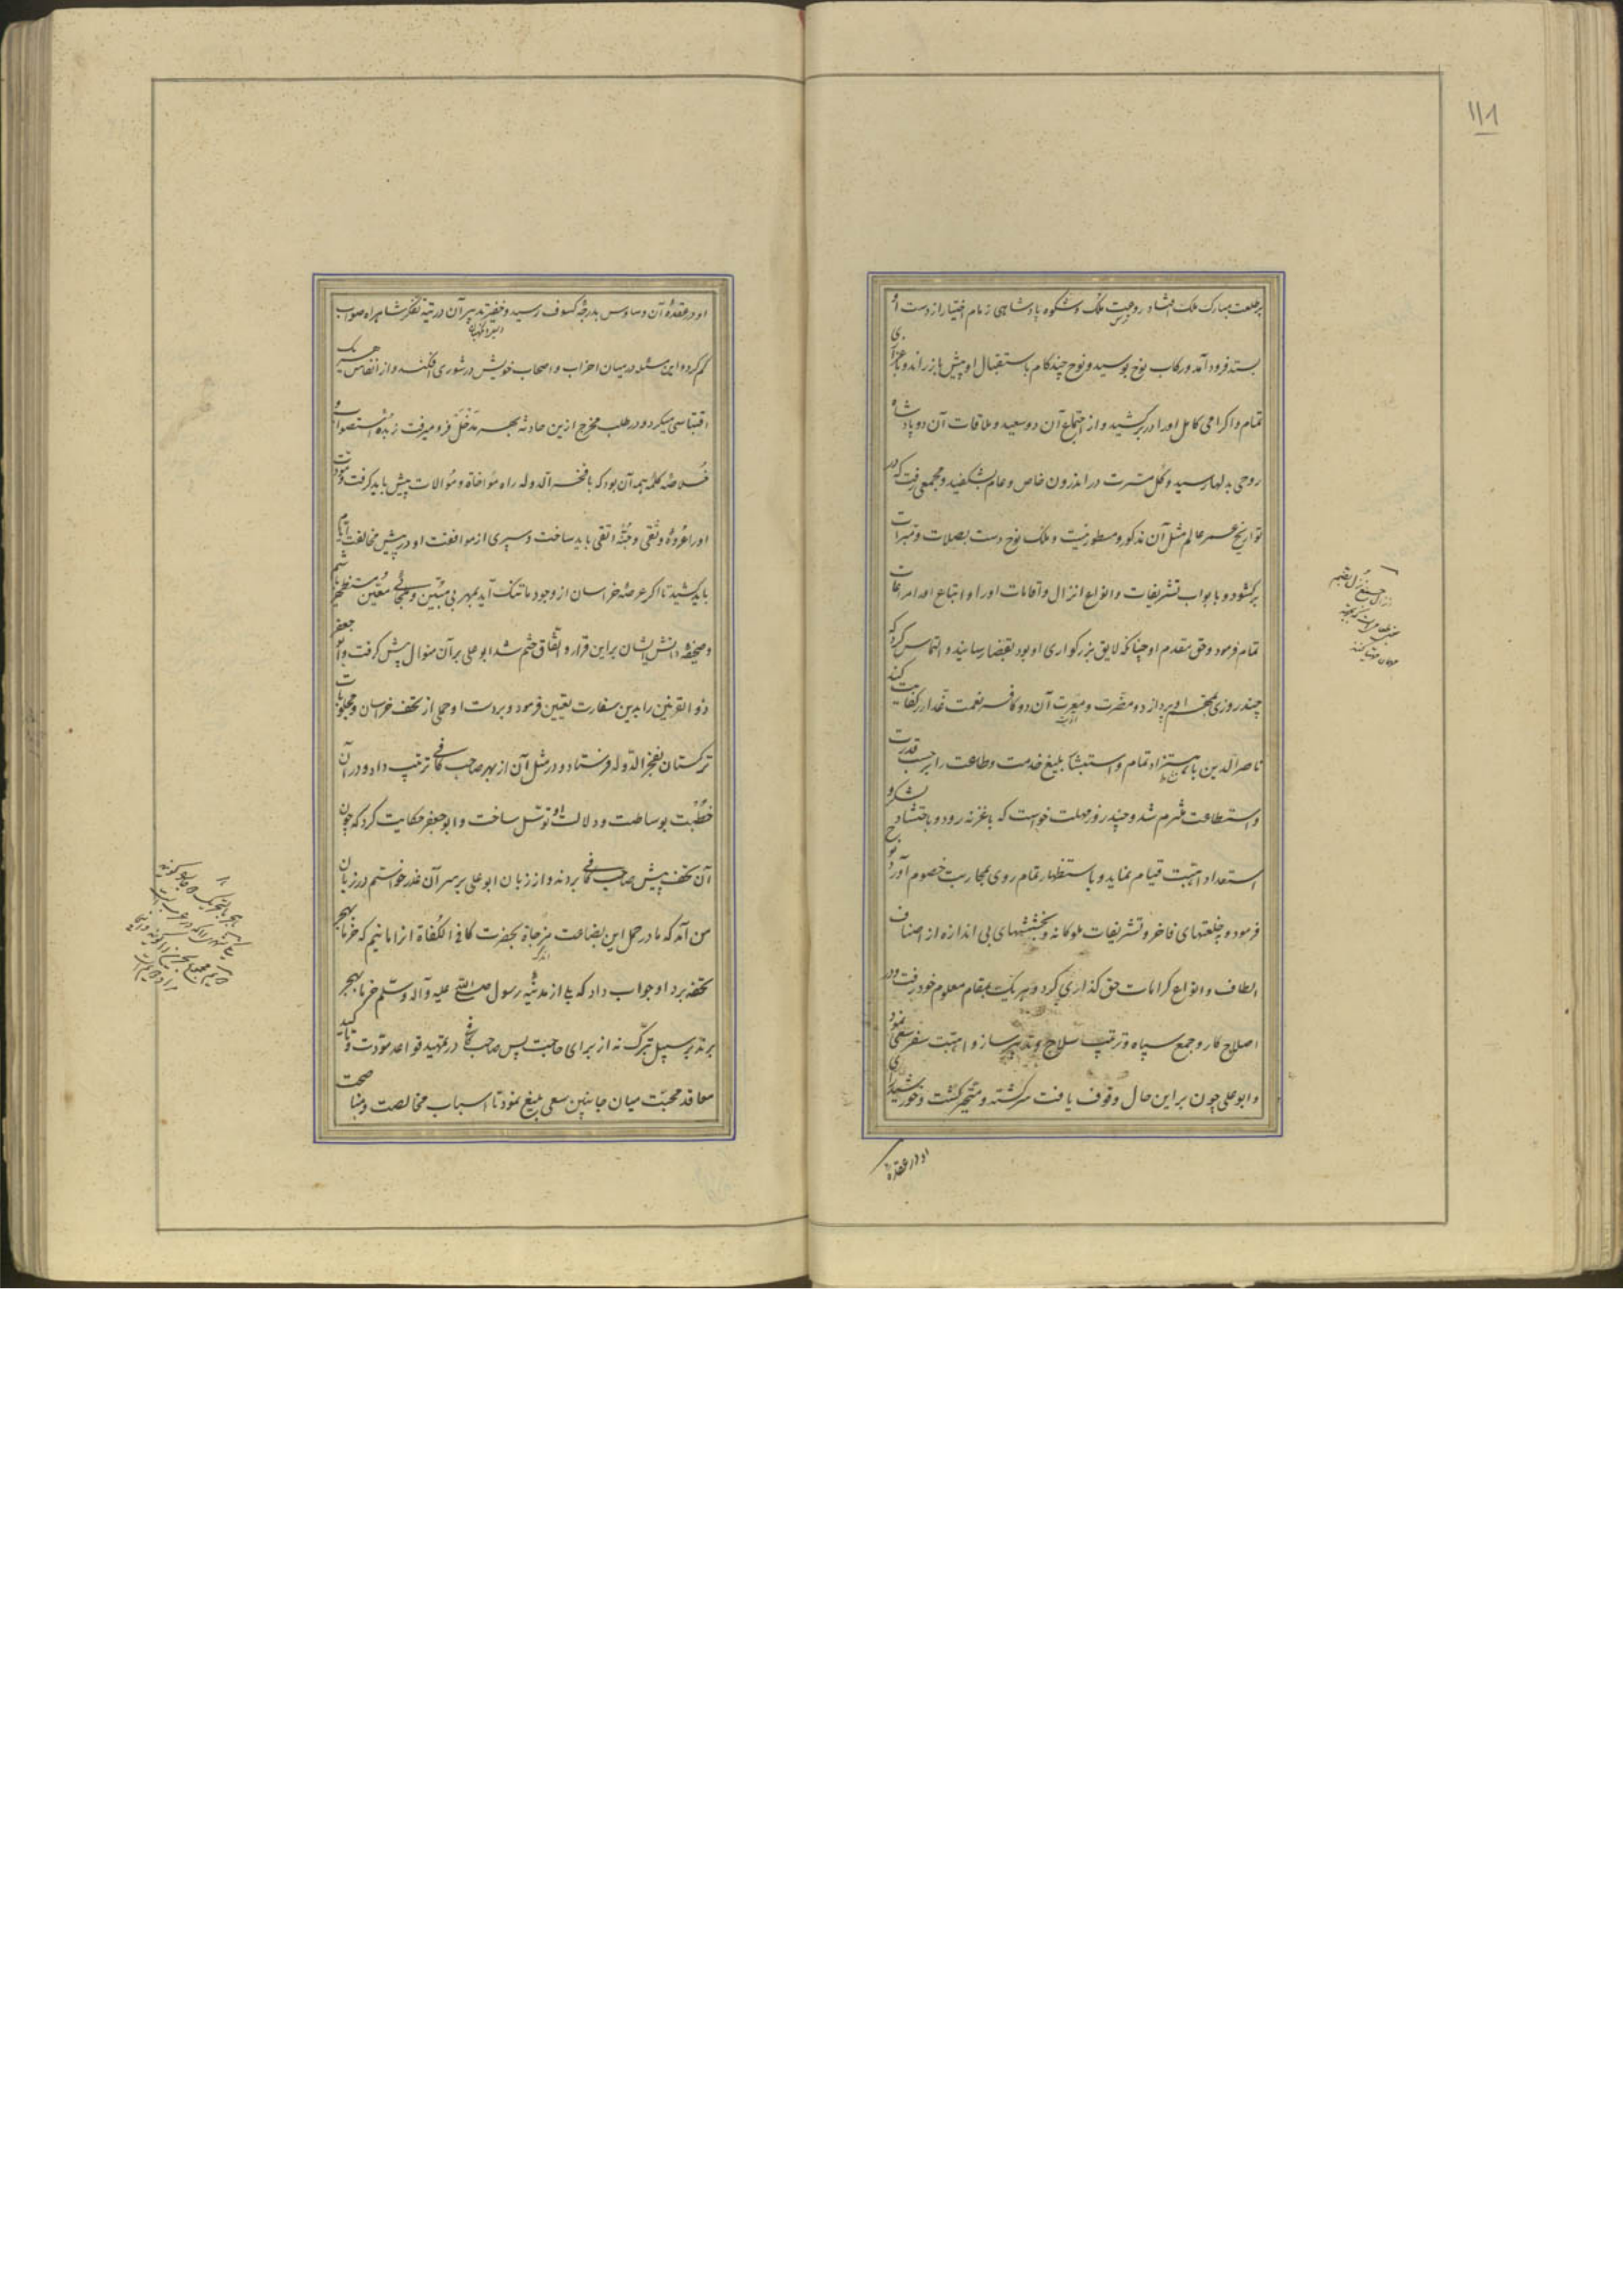 ۱۱۸
برطلعت مبارک ملک افتاد روعت ملک و شکوه پادشاهی زمام اختیار از دست او
بستد فرود آمد و رکاب نوح ببوسید و نوح چند کام باستقبال او پیش باز راند و باعزازی
تمام و اکرامی کامل او را در بر کشید و از اجتماع آن دو سعید و ملاقات آن دو پادشاه
روحی بدلها رسید و کل مسرت در اندرون خاص و عام بشکفید و مجمعی رفت که در
تواریخ عمر عالم مثل آن مذکور و مسطور نیست و ملک نوح دست بصلات و مبرات
برکشود و با بواب تشریفات و انواع انزال و اقامات او را و اتباع او را مراعات
تمام فرمود و حق مقدم او چنانکه لایق بزرکواری او بود بقضا رسانید و التماس کرد که
چند روزی او بپردازد و مضرت و معرت آن دو کافر نعمت غدار کفایت کند
ناصر الدین باهتزاز تمام و استبشار بلیغ خدمت و طاعت را بر حسب قدرت
و استطاعت ملتزم شد و چند روز مهلت خواست که باغزنه رود و باحتشاد لشکر و
استعداد اهبت قیام نماید و باستظهار تمام روی بمحاربت خصوم آورد نوح
فرمود و بخلعتهای فاخر و تشریفات ملوکانه و بخششهای بی اندازه از اصناف
الطاف و انواع کرامات حق کذاری کرد و هر یک بمقام معلوم خود رفت و در
اصلاح کار و جمع سپاه و ترتیب سلاح و تدبیر ساز و اهبت سفر سعی نمود
و ابو علی چون بر این حال وقوف یافت سرکشته و متحیر کشت و خورشید رای
او در عقده
او در عقدهٔ آن وساوس بدرجهٔ کسوف رسید و خضر تدبیر آن در تیه تفکر شاهراه صواب
کم کرد و این مسئله در میان احزاب و اصحاب خویش در شوری افکند و از انفاس هر یک
اقتباسی میکرد و در طلب مخرج ازین حادثه بهر مدخل فرو میرفت زبده استصواب و
خلاصهٔ کلمهٔ همه آن بود که با فخر الدوله راه مؤاخاة و موالات پیش باید کرفت و مودت
او را عروهٔ وثقی و جنهٔ اتقی باید ساخت و سپری از موافقت او در پیش مخالفت ایام
باید کشید تا اکر عرصهٔ خراسان از وجود ما تنک آید بمهربی مبین و ملجائی معین مستظهر باشیم
و صحیفه دانش ایشان بر این قرار و اتفاق ختم شد ابو علی بر آن منوال پیش کرفت و ابو جعفر
ذو القرنین را بدین سفارت تعیین فرمود و بر دست او حملی از تحف خراسان و مجلوبات
ترکستان بفخر الدوله فرستاد و در مثل آن از بهر صاحب کافی ترتیب داد و در آن
خطبت بوساطت و دلالت او توسل ساخت و ابو جعفر حکایت کرد که چون
آن تحف پیش صاحب کافی بردند و از زبان ابو علی بر سر آن عذر خواستم در زبان
من آمد که ما در حمل این بضاعت مزجاة بحضرت کافی الکفاة از آن مانیم که خرما بهجر
تحفه برد او جواب داد که بلی از مدینهٔ رسول صلی الله علیه و آله و سلم خرما بهجر
برند بر سبیل تبرک نه از برای حاجت پس صاحب کافی در تمهید قواعد مودت و تاکید
معاقد محبت میان جانبین سعی بلیغ نمود تا اسباب مخالصت و مناصحت